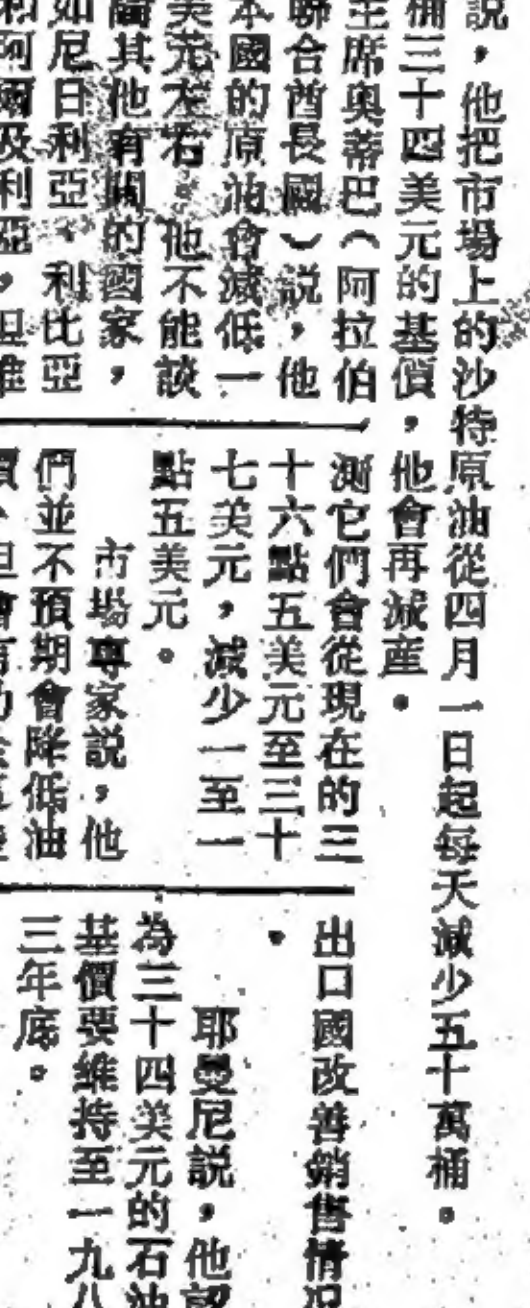 說，他把市場上的沙特原油從四月一日起每天減少五十萬桶。
桶三十四美元的基價，他會再減産。
主席奧蒂巴（阿拉伯
聯合酋長國）説，他
本國的原油會減低一
美元左右。他不能談
其他有關的國家，
如尼日利亞、利比亞
阿爾及利亞，但
測它們會從現在的三
十六點五美元至三十
七美元，減少一至一
點五美元。
市場專家説，他
們並不預期會降低油
出口國改善銷售情况
。
耶曼尼説，他認
為三十四美元的石油
基價要維持至一九八
三年底。